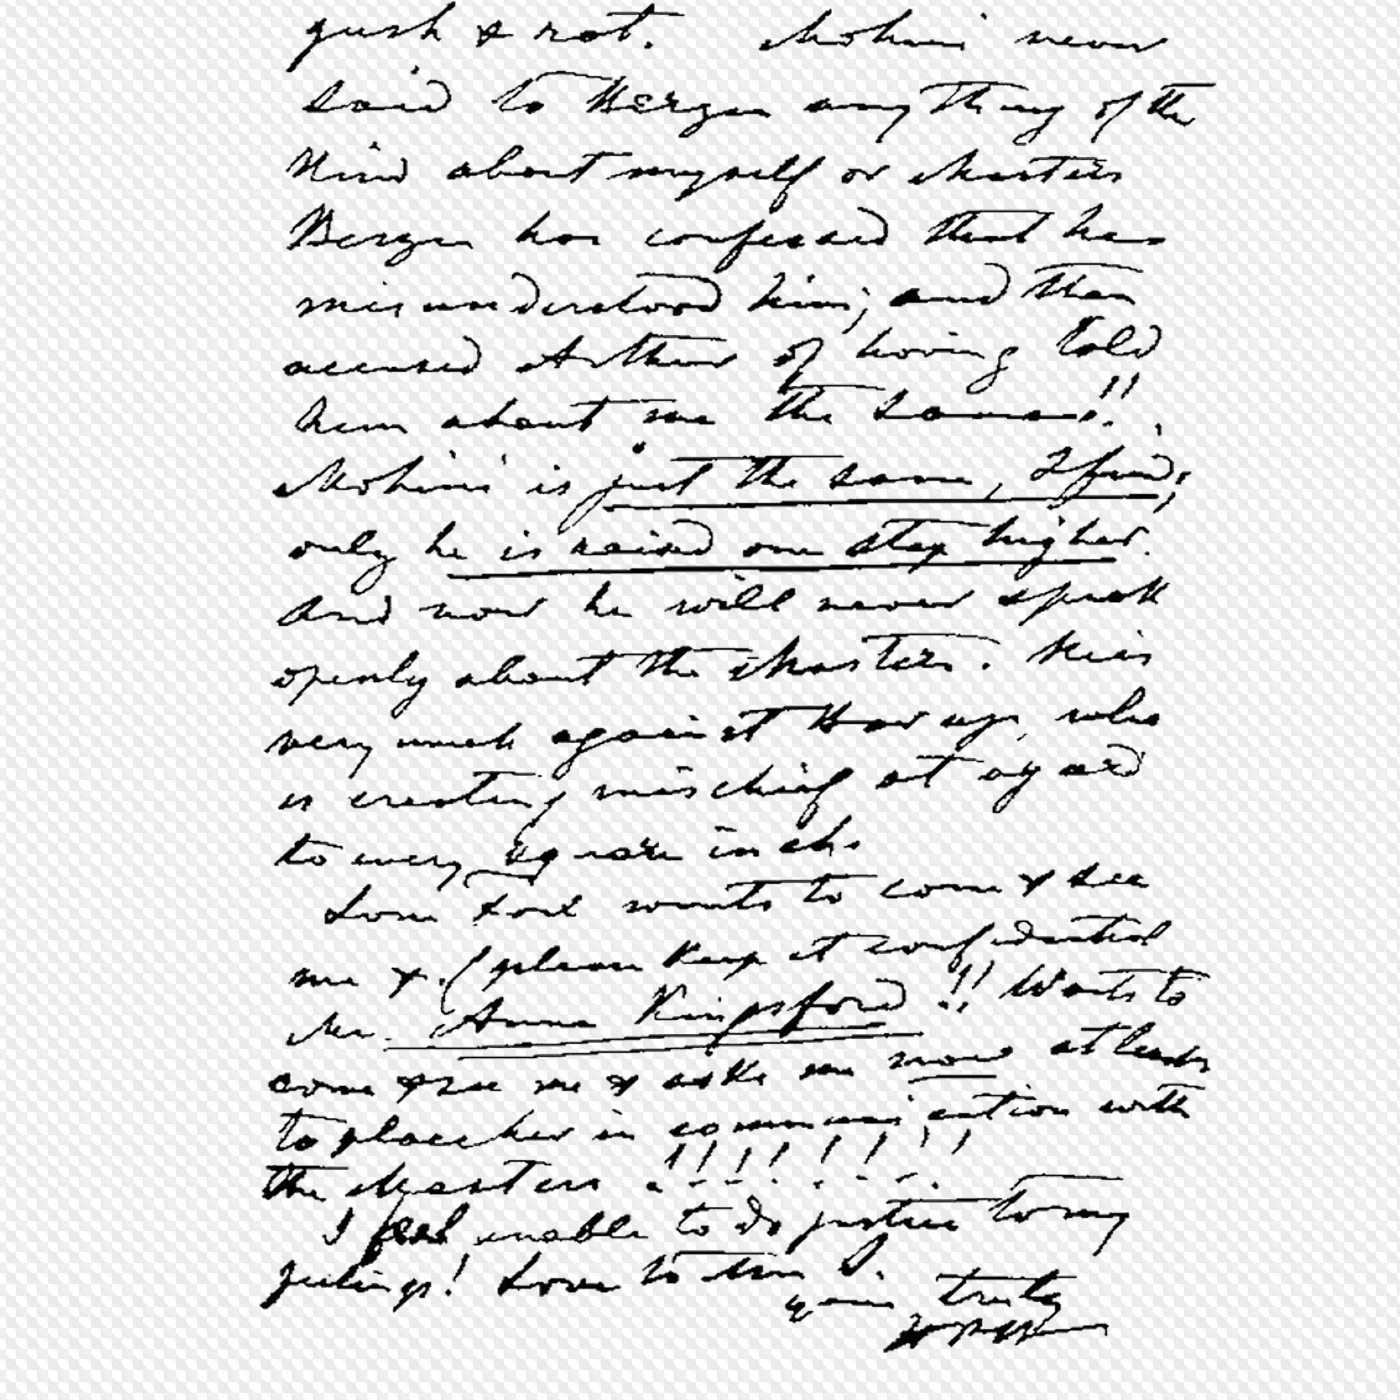 gush & rot. Mohini never
said to Bergen anything of the
Kind about myself or Masters
Bergen has confessed that has
misunderstood him; and then
accused Arthur of having told
him about me the same!!
Mohini is just the same, I find;
only he is raised one step higher.
And now he will never speak
openly about the Masters. He is
very much against who
is creating mischief at a yard
to every square inch.
wants to come & see
me & (please Keep it confidential
Mr. Anna Kingsford!! Wants to
come & see me & asks me now at least
to place her in communication with
the Masters !!!!!!!!
I feel unable to do justice to my
feelings! Love to
yours truly
HPB